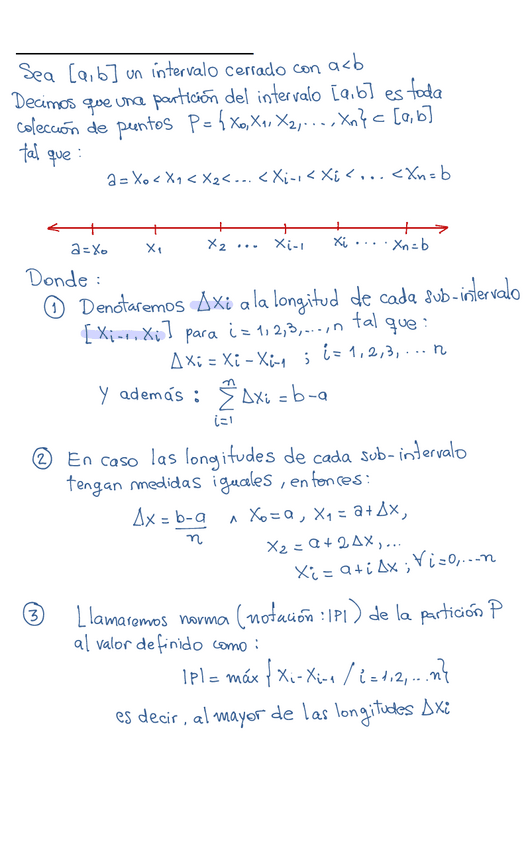 Sea [a,b] un intervalo cerrado con a<b
Decimos que una partición del intervalo [a,b] es toda
colección de puntos P={x₀,x₁,x₂,...,xₙ}⊂[a,b]
tal que:
a=x₀<x₁<x₂<...<xᵢ₋₁<xᵢ<...<xₙ=b
a=x₀ x₁ x₂ ... xᵢ₋₁ xᵢ .... xₙ=b
Donde:
① Denotaremos Δxᵢ a la longitud de cada sub-intervalo
[xᵢ₋₁,xᵢ] para i=1,2,3,...,n tal que:
Δxᵢ=xᵢ-xᵢ₋₁ ; i=1,2,3,...n
y además: ∑ᵢ₌₁ⁿ Δxᵢ=b-a
② En caso las longitudes de cada sub-intervalo
tengan medidas iguales, entonces:
Δx=(b-a)/n ∧ x₀=a, x₁=a+Δx,
x₂=a+2Δx,...
xᵢ=a+iΔx; ∀i=0,...n
③ Llamaremos norma (notación:|P|) de la partición P
al valor definido como:
|P|=máx{xᵢ-xᵢ₋₁/i=1,2,...n}
es decir, al mayor de las longitudes Δxᵢ